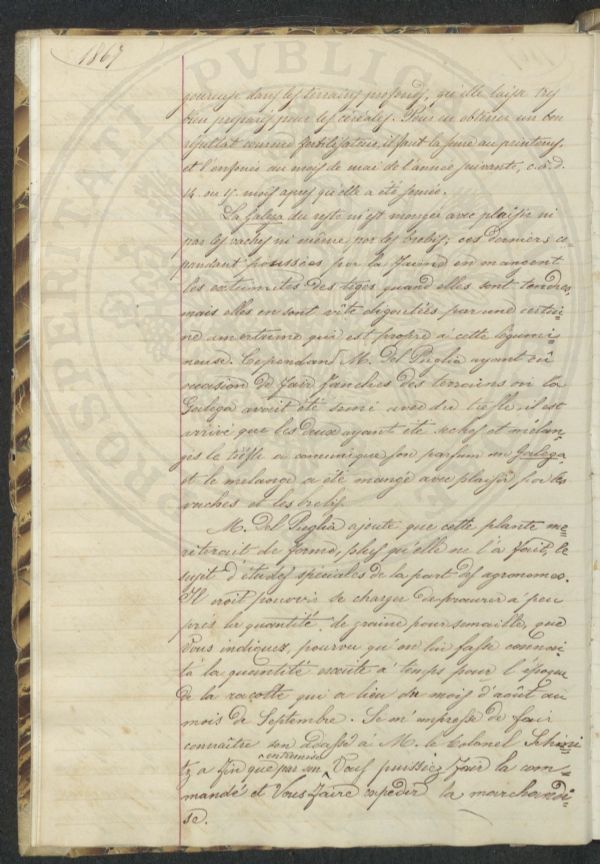 1867
PROSPERITATI PUBLICAE
dans les terrains profonds, qu'elle laisse tres
bien preparés pour les céréales. Pour en obtenir un bon
résultat comme fertilisateur, il faut la semer au printems,
et l'enfouir au mois de mai de l'année suivante, c.à.d.
14 ou 15 mois apres qu'elle a été semée.
La Galega du reste n'est mangée avec plaisir ni
par les vaches ni même par les brebis; ces derniers ce-
pendant poussées par la faim en mangent
les extremités des tiges quand elles sont tendres,
mais elles en sont vite degoutées par une certai=
ne amertume qui est propre à cette légumi=
neuse. Cependant M. Del Puglia ayant eû
occasion de faire faucher des terrains où la
Galega avait été semé avec du trefle, il est
arrivé que les deux ayant été sechés et mélan=
gés le trèfle a comuniqué son parfum au Galega,
et le melange a été mangé avec plaisir par les
vaches et les brebis.
M. Del Puglia ajoute que cette plante me=
riterait de forme, plus qu'elle ne l'a fait, le
sujet d'études spéciales de la part des agronomes.
Il croit pouvoir se charger de procurer à peu
près la quantité de graine pour semaille, que
Vous indiquez, pourvu qu'on lui fasse connai-
tà la quantité exacte à temps pour l'époque
de la racolte qui a lieu du mois d'août au
mois de Septembre. Je m'empresse de fair
connaître son adresse à M. le Colonel
a fin que par son entremise Vous puissiez faire la com=
mande et Vous faire expedir la marchandi=
se.